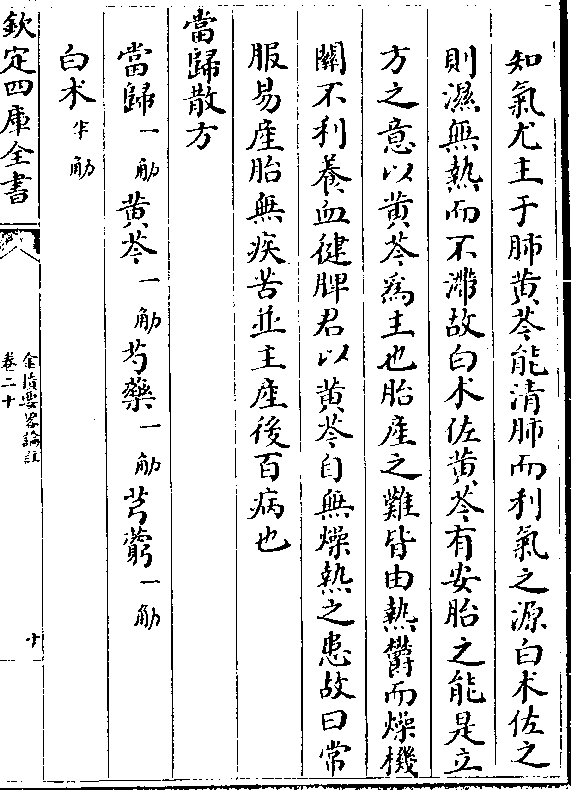 知氣尤主于肺黄芩能清肺而利氣之源白术佐之
則濕無熱而不滯故白术佐黄芩有安胎之能是立
方之意以黄芩為主也胎產之難皆由熱鬱而燥機
關不利養血健脾君以黄芩自無燥熱之患故曰常
服易産胎無疾苦並主產後百病也
當歸散方
當歸一觔 黄芩一觔 芍藥一觔 芎藭一觔
白术半觔
欽定四庫全書
金匱要畧論註
卷二十
十